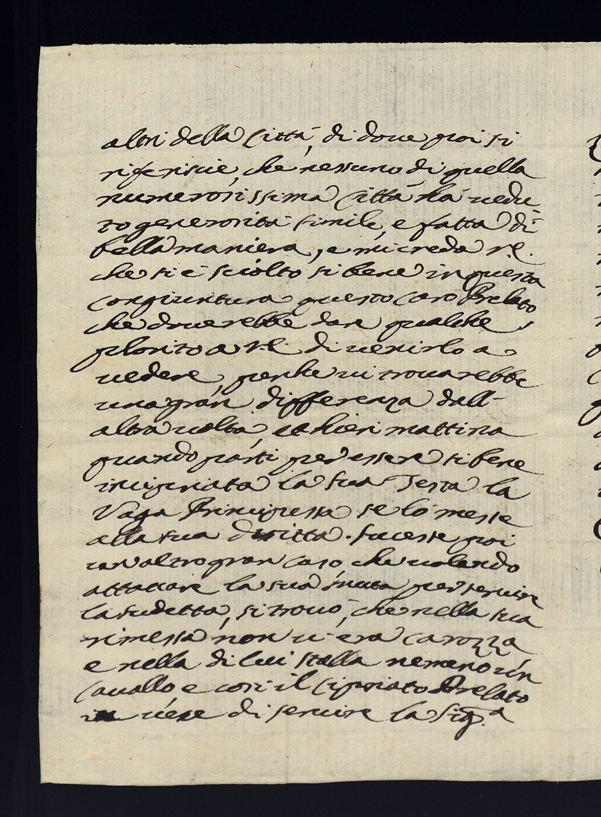 altri della Città, di doue poi si
riferiscie, che nessuno di quella
numerosissima Città hà uedu-
to generosità simile, e fatta di
bella maniera, e mi creda
che si è sciolto si bene in questa
congiuntura questo caro Prelato,
che douerebbe dar qualche
di uenirlo a
uedere, perche ui trouarebbe
una gran differenza dall-
altra uolta, et hieri mattina
quando parti per esser si bene
incipriata la sua Testa la
Vaga Principessa se lo messe
alla sua diritta. Sucesse poi
un altro gran caso che uolendo
attaccare la sua muta per seruire
la sudetta, si trouò, che nella sua
rimessa non ui era carozza
e nella di lui stalla nemeno un
Cauallo e così il Cipriato Prelato
in uece di seruire la Sig.ra